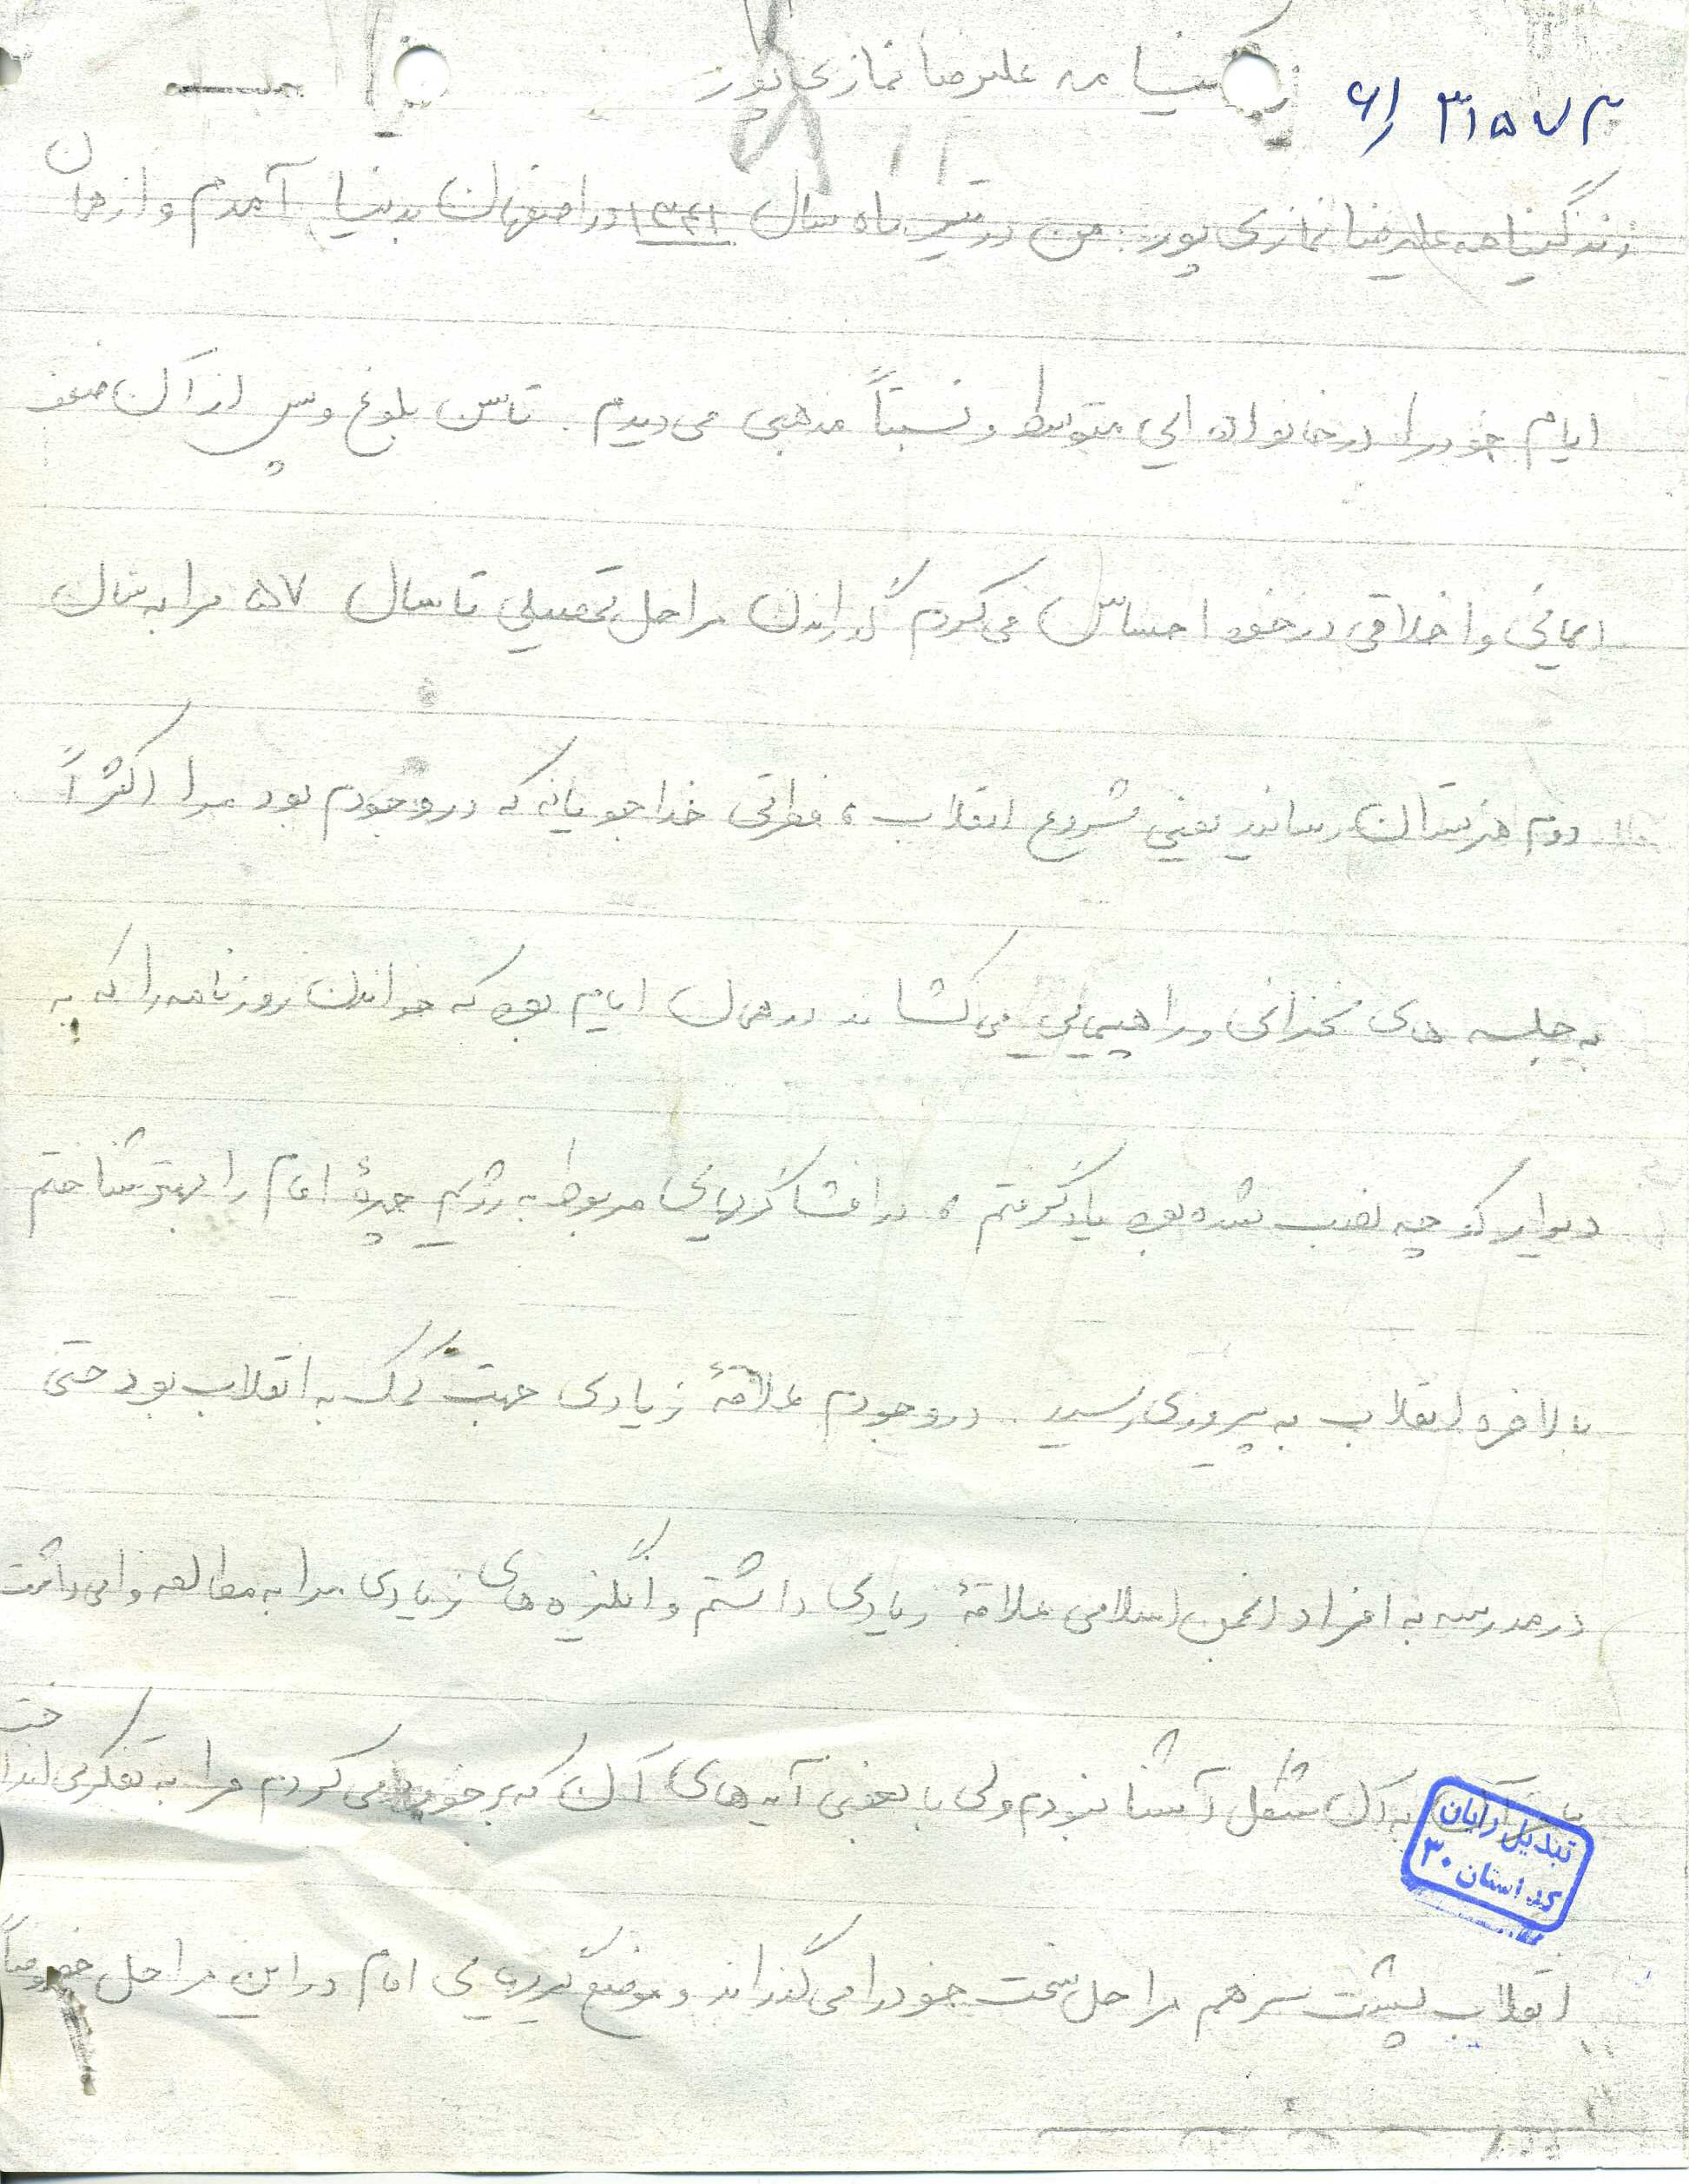 زندگینامه علیرضا نمازی پور
۶۱ ۳۱۵۷۳
زندگینامه علیرضا نمازی پور: من در تیر ماه سال ۱۳۴۱ در اصفهان بدنیا آمدم و از همان
ایام خود را در خانواده ایی متوسط و نسبتاً مذهبی می دیدم. تا سن بلوغ و پس از آن ضعف
ایمانی و اخلاقی در خود احساس می کردم گذراندن مراحل تحصیلی تا سال ۵۷ مرا به سال
دوم هنرستان رسانید یعنی شروع انقلاب، فطرتی خداجویانه که در وجودم بود مرا اکثراً
به جلسه های سخنرانی و راهپیمایی می کشاند در همان ایام بود که خواندن روزنامه را که به
دیوار کوچه نصب شده بود یاد گرفتم، در افشاگریهایی مربوط به رژیم چهرهٔ امام را بهتر شناختم
بالاخره انقلاب به پیروزی رسید. در وجودم علاقهٔ زیادی جهت کمک به انقلاب بود حتی
در مدرسه به افراد انجمن اسلامی علاقهٔ زیادی داشتم و انگیزه های زیادی مرا به مطالعه وامی داشت
با قرآن به آن شکل آشنا نبودم ولی با بعضی آیه های آن که برخورد می کردم مرا به تفکر می انداخت
انقلاب پشت سر هم مراحل سخت خود را می گذراند و موضع گیریهایی امام در این مراحل خصوصاً
تبدیل رایان
کد استان ۳۰